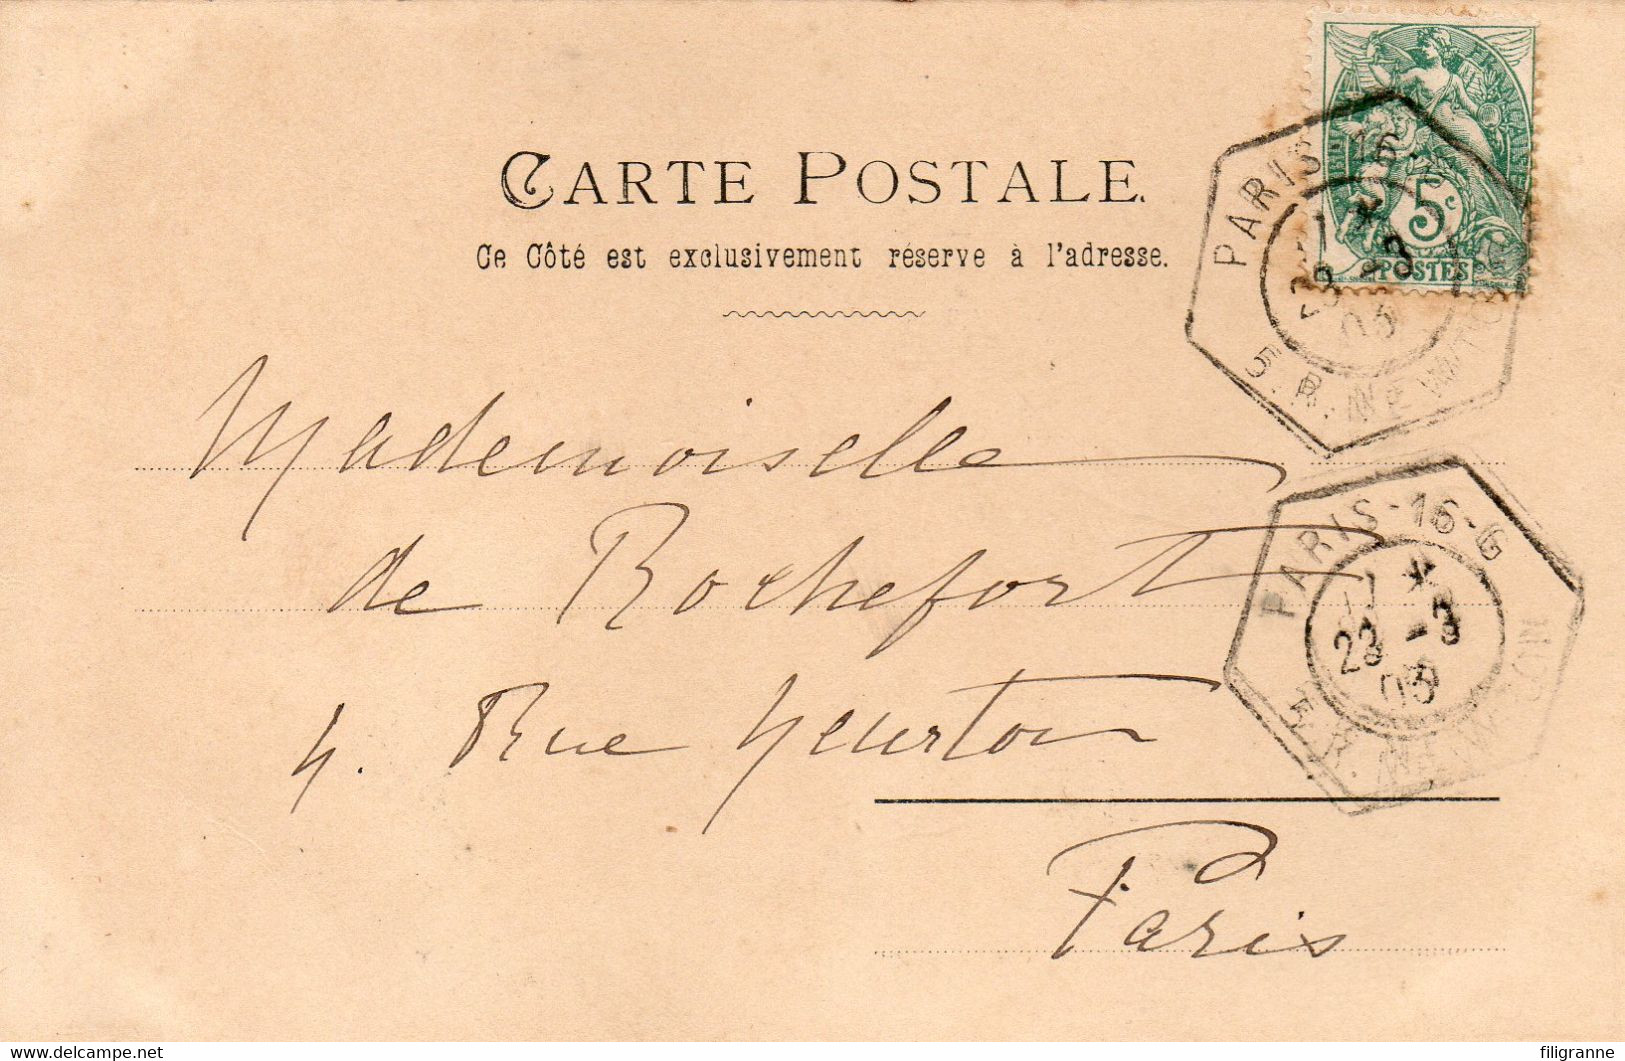 RÉPUBLIQUE FRANÇAISE
5c
POSTES
PARIS-16-G
23 -3
03
5.R.MEWTON
CARTE POSTALE.
Ce Côté est exclusivement réserve à l'adresse.
Mademoiselle
de Rochefort
4. Rue Newton
Paris
PARIS-16-G
23 -3
03
R.NEWTON
www.delcampe.net
filigranne